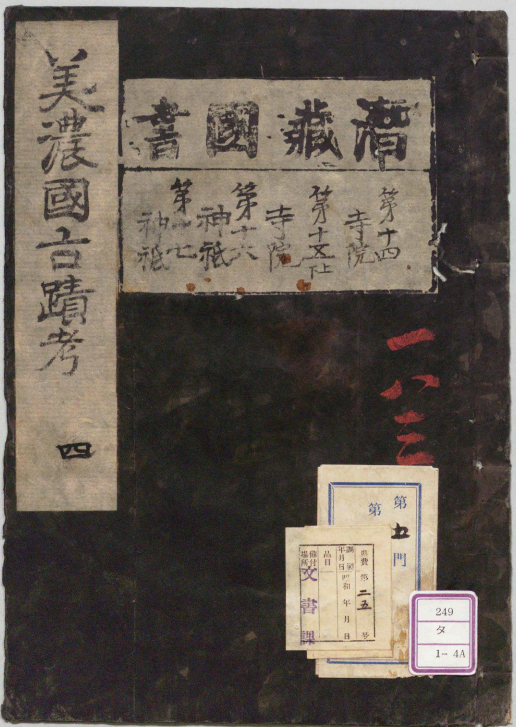 美濃國古蹟考
四
濟藏國書
第十四
寺院
第十五 上下
寺院
第十六
神祇
第十七
神祇
一八三
第五門
第
県費第二五号
年月日 昭和 年 月 日
品目
備付場所 文書課
249
タ
1-4A